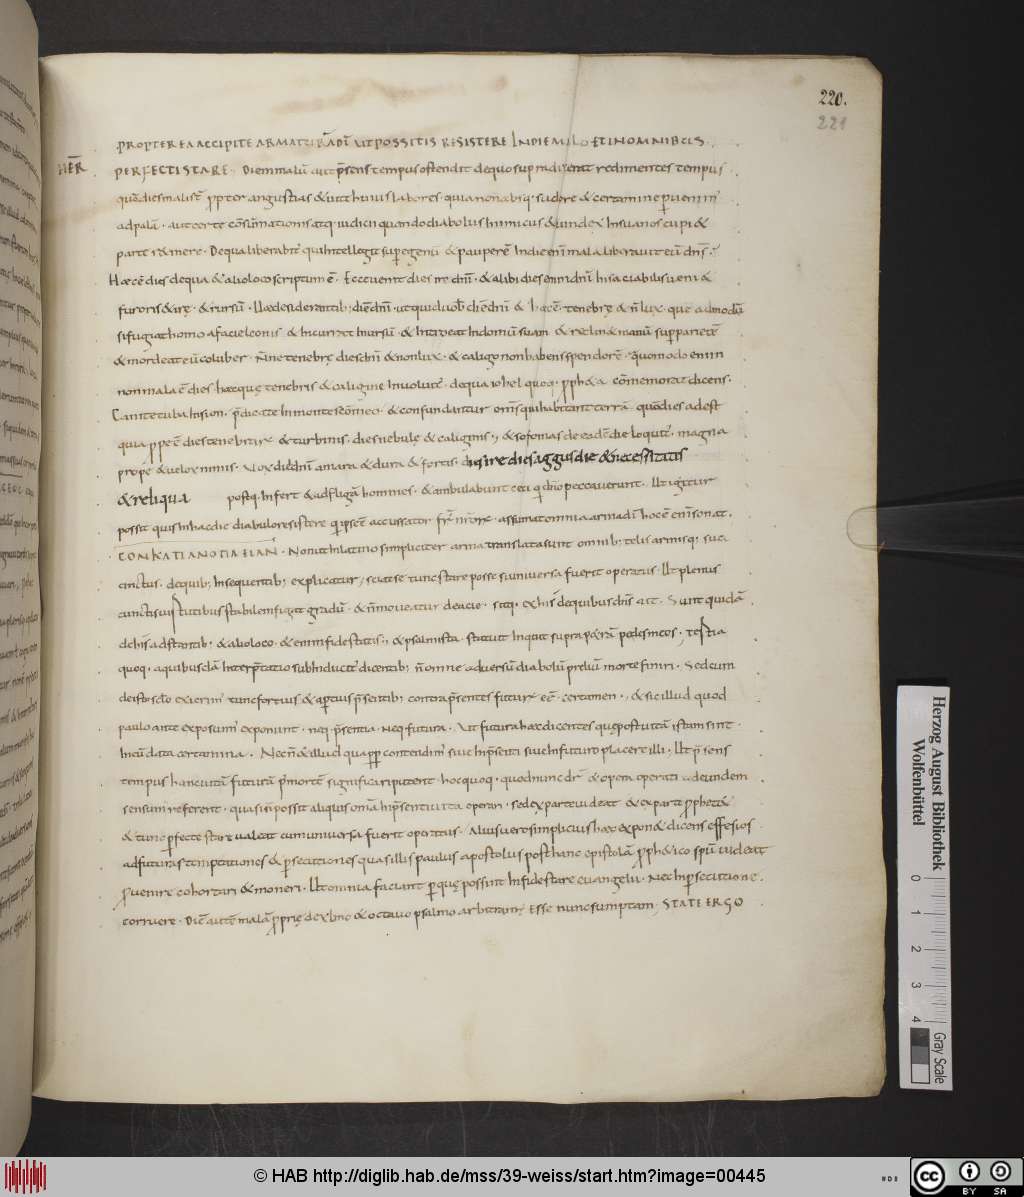 220.
221
PROPTEREA ACCIPITE ARMATURĀ DĪ UT POSSITIS RESISTERE IN DIE MALO ET IN OMNIBUS
HIER̄
PERFECTI STARE. Diem malū aut p̄sens tempus ostendit de quo supra dixerat redimentes tempus
quō dies mali st̄ propter angustias & uitę huius labores. quia non absq; sudore & certamine peruenim̄
ad palā. aut certe consūmationis atq; iudicii quando diabolus inimicus & uindex in suanos cupi &
parte retinere. De qua liberabit̄ qui intellegit sup egenū & pauperē In die enī mala liberauit eū dn̄s.
Hæc ē dies de qua & alio loco scriptum ē. Ecce uenit dies īre dn̄i. & alibi dies enim dn̄i insaciabilis ueni &
furoris & irę. & rursū. Uæ desiderantib; diē dn̄i. ut quid uob̄ diē dn̄i & hæc ē tenebrę & n̄ lux. que admodū
si fugiat homo a facie leonis & incurrat in ursū. & introeat in domū suam & reclin& manū sup parietē
& mordeat eū coluber. Nōne tenebrę dies dn̄i & non lux. & caligo non habens spendorē. Quomodo enim
non mala ē dies. hæc quę tenebris & caligine inuoluit̄. de qua iohel quoq; proph&a cōmemorat dicens.
Canite tuba in sion. p̄dicate in monte sc̄o meo. & confundantur om̄s qui habitant terrā. quō dies adest
quia prope ē dies tenebrarū & turbinis. dies nebulę & caliginis. & sofonias de eadē die loquit̄. magna
prope & uelox nimis. Uox diei dn̄i amara & dura & fortis. dies ire dies aggus die & necessitatis
& reliqua postq; infert & adfligā homines. & ambulabunt ceci q dn̄o peccauerunt. Ut igitur
possit quis in hac die diabulo resistere q ipse ē accussator fr̄m nr̄orū. assumat omnia arma dī hoc ē enī sonat.
. Non ut in latino simpliciter arma translata sunt omnib; telis armisq; suci
cinctus. de quib; in sequentib; explicatur, sciat se tunc stare posse si uniuersa fuerit operatus. Ut plenus
cunctis uirtutibus stabilem figat gradū. & n̄ moueatur de acie. sitq; ex his de quibus dn̄s ait. Sunt quidā
de his adstantib; & alio loco. & enim fide statis, & psalmista. statuit inquit supra p&rā pedes meos, &c
quoq; a quibusdā interp̄tatio subinducit̄ dicentib; n̄ omne aduersū diabolū prelium morte finiri. Sed cum
de isto sc̄lo exierim̄ tunc fortius & apertius p̄sentib; contra p̄sentes futurū eē certamen. & sic illud quod
paulo ante exposuim̄ exponunt. neq; p̄sentia neq; futura. Ut futura hæc dicentes quę post uitā istam sint
incū data certamina. Nec n̄ & illud qua p̄p contendim̄ siue in p̄senti siue in futuro placere illi. Ut p̄sens
tempus hanc uitā futurā p̄ mortē significari putent. hoc quoq; quod nunc dr̄ & opera operati ad eundem
sensum referent. quasi n̄ possit aliquis om̄a in p̄senti uita operari. sed ex parte uideat & ex parte proph&&
& tunc perfecte stare ualeat cum uniuersa fuerit operatus. Alius uero simplicius hæc expon& dicens effesios
ad futuras temptationes & persecutiones quas illis paulus apostolus post hanc epistolā proph&ico spū uideat
peruenire cohortari & moneri. Ut omnia faciant p quę possint in fide stare euangelii. Nec in persecutione
corruere. Diē autē malā proprię de xl mo & octauo psalmo arbitramr̄ esse nunc sumptam, STATE ERGO
Herzog August Bibliothek
Wolfenbüttel
0
1
2
3
4
Gray Scale
© HAB http://diglib.hab.de/mss/39-weiss/start.htm?image=00445
cc BY SA